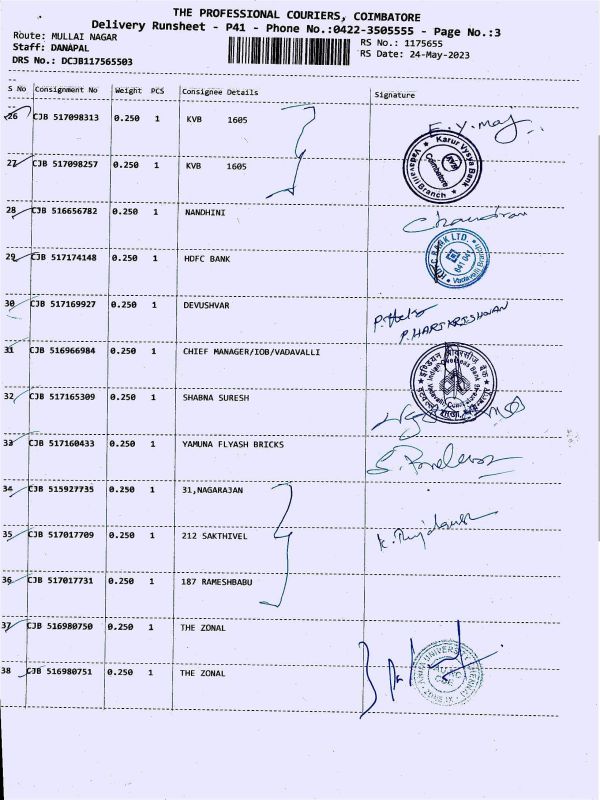 THE PROFESSIONAL COURIERS, COIMBATORE
Delivery Runsheet - P41 - Phone No.:0422-3505555 - Page No.:3
Route: MULLAI NAGAR
RS No.: 1175655
Staff: DANAPAL
RS Date: 24-May-2023
DRS No.: DCJB117565503
S No Consignment No Weight PCS Consignee Details Signature
26 CJB 517098313 0.250 1 KVB 1605
27 CJB 517098257 0.250 1 KVB 1605
Karur Vysya Bank
KVB
Coimbatore
Vadavalli Branch
28 CJB 516656782 0.250 1 NANDHINI
29 CJB 517174148 0.250 1 HDFC BANK
HDFC BANK LTD.
641 041
Vadavalli Branch
30 CJB 517169927 0.250 1 DEVUSHVAR
P. HARI KRISHNAN
31 CJB 516966984 0.250 1 CHIEF MANAGER/IOB/VADAVALLI
Indian Overseas Bank
32 CJB 517165309 0.250 1 SHABNA SURESH
33 CJB 517160433 0.250 1 YAMUNA FLYASH BRICKS
34 CJB 515927735 0.250 1 31,NAGARAJAN
35 CJB 517017709 0.250 1 212 SAKTHIVEL
36 CJB 517017731 0.250 1 187 RAMESHBABU
37 CJB 516980750 0.250 1 THE ZONAL
38 CJB 516980751 0.250 1 THE ZONAL